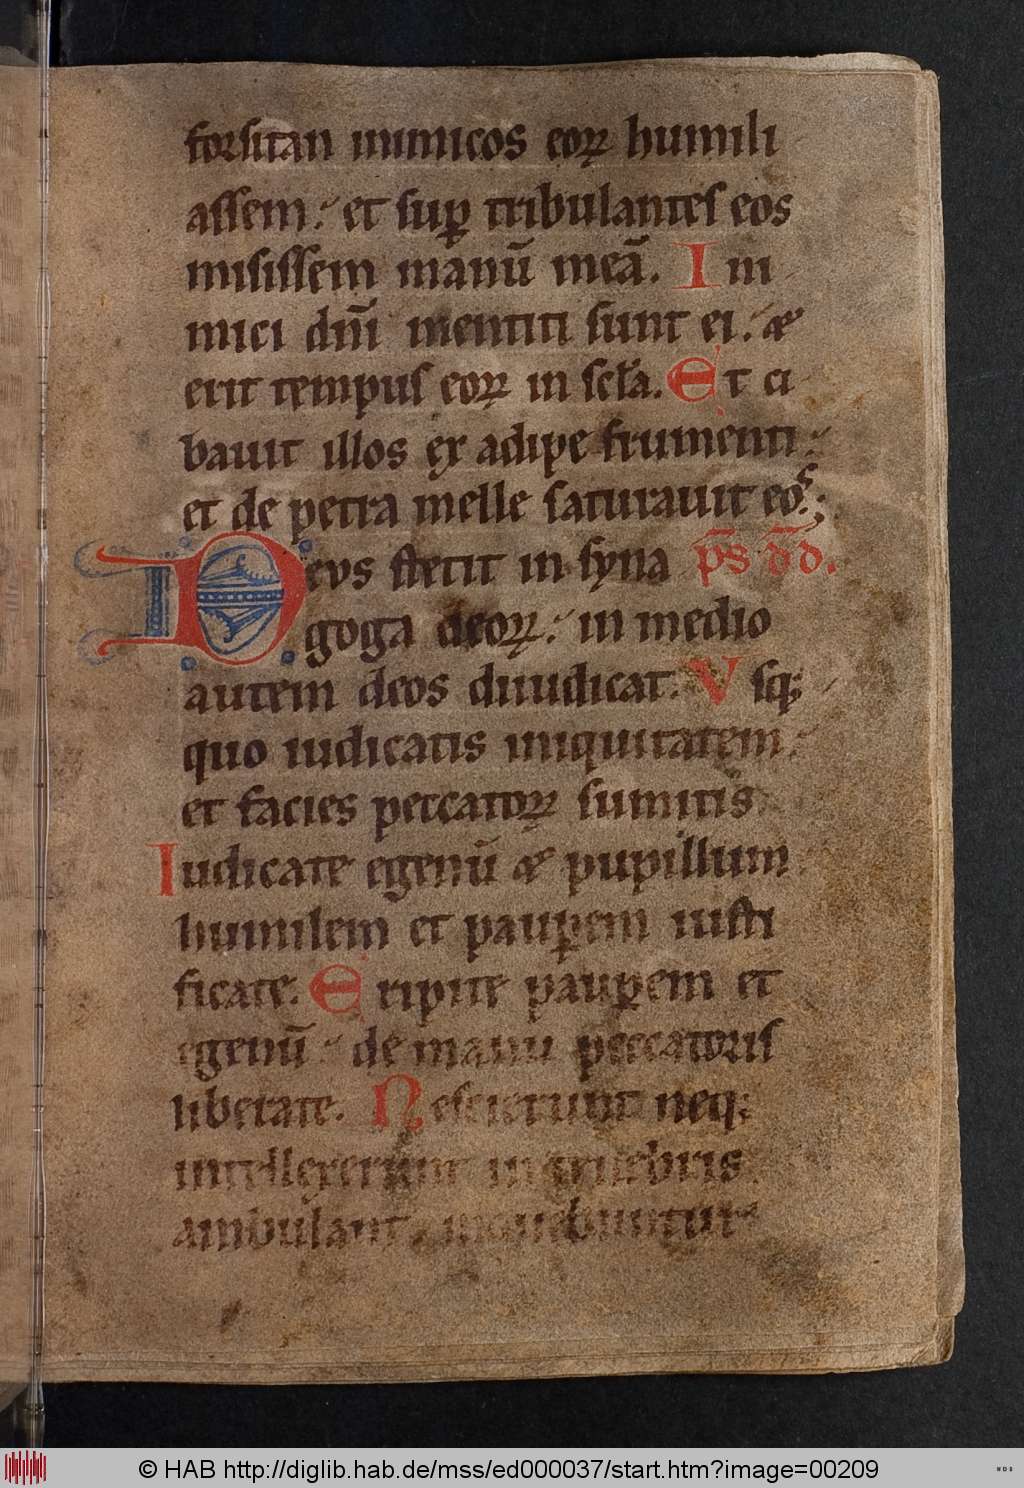 forsitan inimicos eoꝝ humili
assem. et suꝑ tribulantes eos
misissem manū meā. Ini
mici dn̄i mentiti sunt ei. &
erit tempus eoꝝ in scl̄a. Et ci
bauit illos ex adipe frumenti.
et de petra melle saturauit eos.;
Deus stetit in syna p̄s d̄d.
goga deoꝝ. in medio
autem deos diiudicat. Vsq;
quo iudicatis iniquitatem.
et facies peccatoꝝ sumitis
Iudicate egenū & pupillum
humilem et pauꝑem iusti
ficate. Eripite pauꝑem et
egenū. de manu peccatoris
liberate. Nescierunt neq;
intellexerunt in tenebris
ambulant. mouebuntur
© HAB http://diglib.hab.de/mss/ed000037/start.htm?image=00209